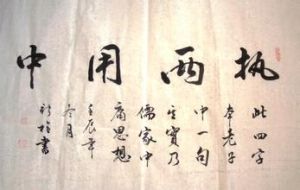 执两用中
此四字
本老子
中一句
其实乃
儒家中
庸思想
壬辰年
冬月
书